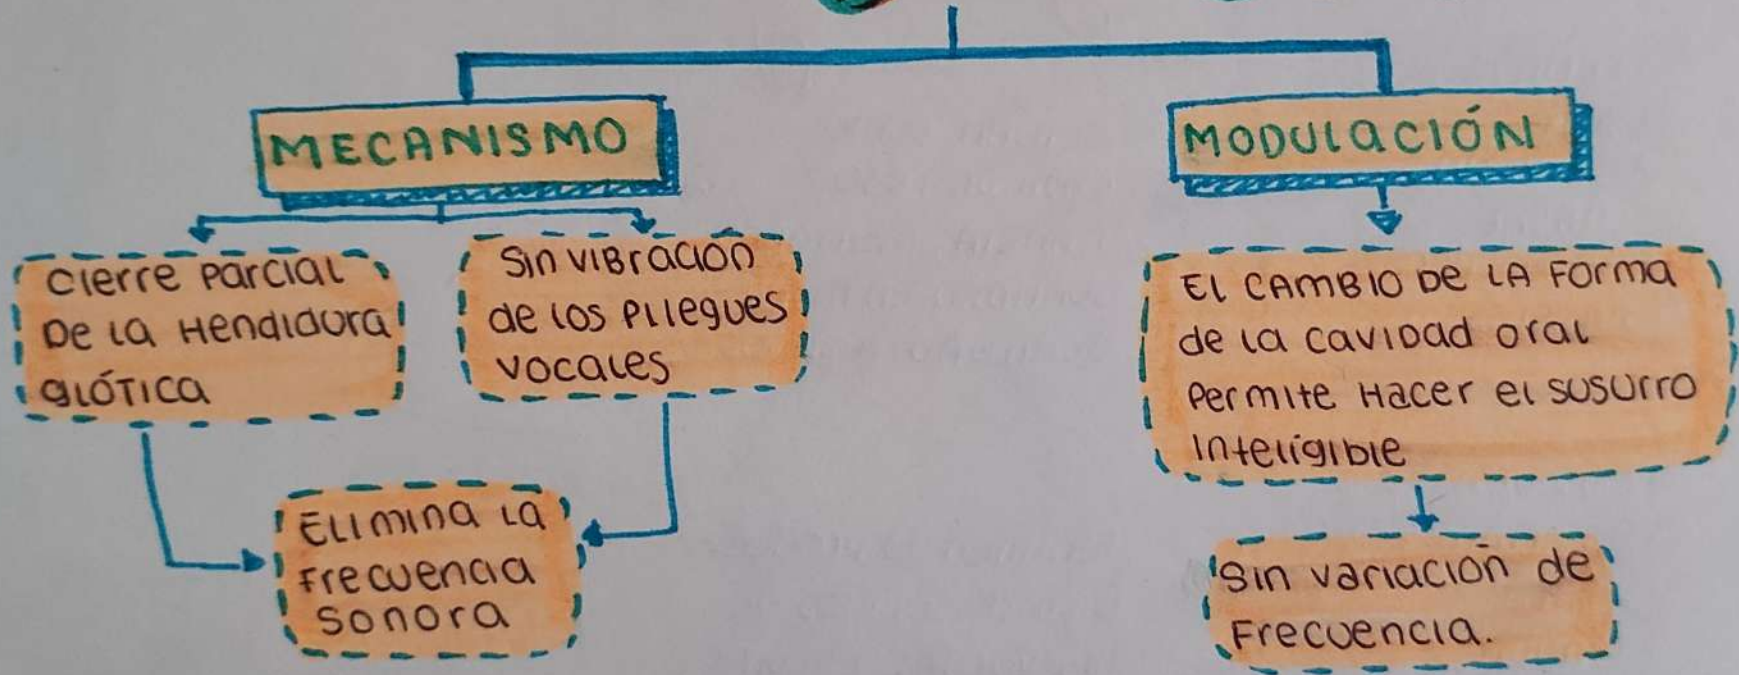 MECANISMO
MODULACIÓN
Cierre Parcial
De la Hendidura
glótica
Sin vibración
de los Pliegues
vocales
Elimina la
Frecuencia
Sonora
El CAMBIO DE LA Forma
de la cavidad oral
Permite Hacer el susurro
Inteligible
Sin variación de
Frecuencia.